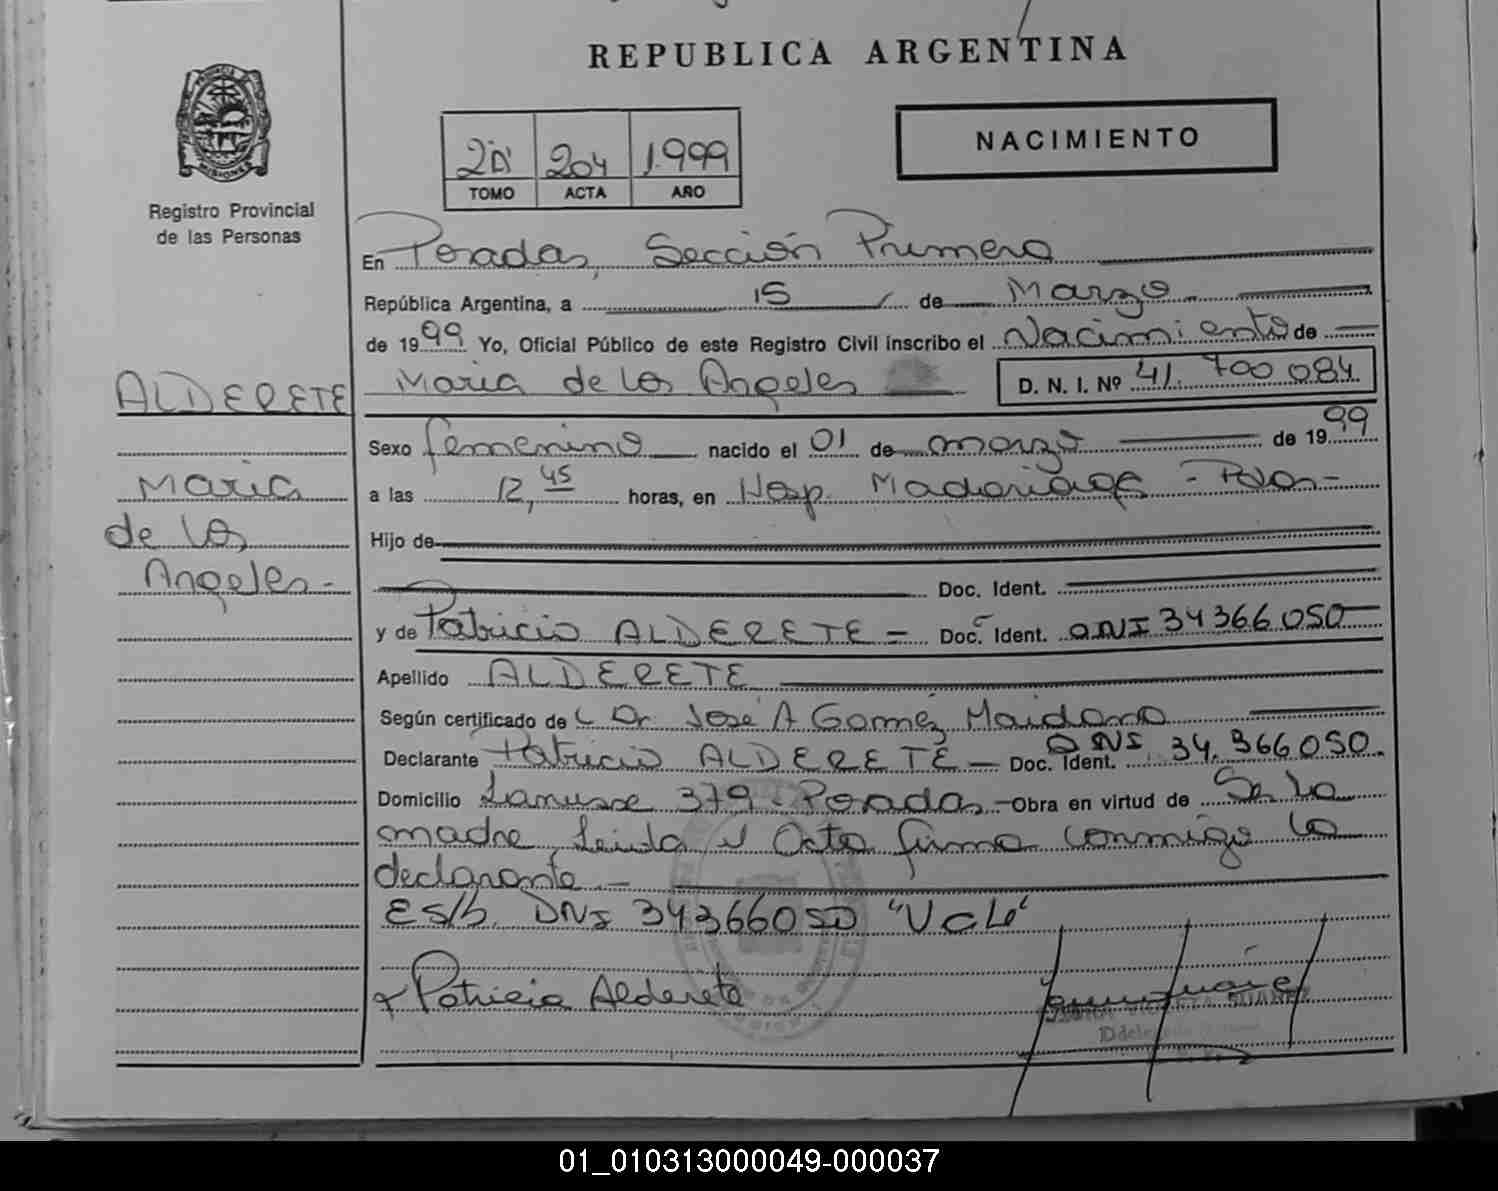 REPUBLICA ARGENTINA
NACIMIENTO
204 1.999
TOMO ACTA AÑO
PROVINCIA DE MISIONES
Registro Provincial
de las Personas
En Posadas, Sección Primera
República Argentina, a 15 de Marzo
de 1999 Yo, Oficial Público de este Registro Civil inscribo el Nacimiento de
Maria de los Angeles D. N. I. Nº 41.700084
ALDERETE
Maria
de los
Angeles-
Sexo femenino nacido el 01 de marzo de 1999
a las 12,45 horas, en Hosp. Madariaga - Pdas-
Hijo de
Doc. Ident.
y de Patricia ALDERETE - Doc. Ident. DNI 34366050
Apellido ALDERETE
Según certificado de Dr. José A Gomez
Declarante Patricia ALDERETE - Doc. Ident. DNI 34.366050.
Domicilio Lanusse 379 - Posadas - Obra en virtud de Ser la
madre, Leida el Acta firma conmigo la
declarante -
ES/b. DNI 34366050 "Vale"
Patricia Alderete
SUAREZ
01_010313000049-000037